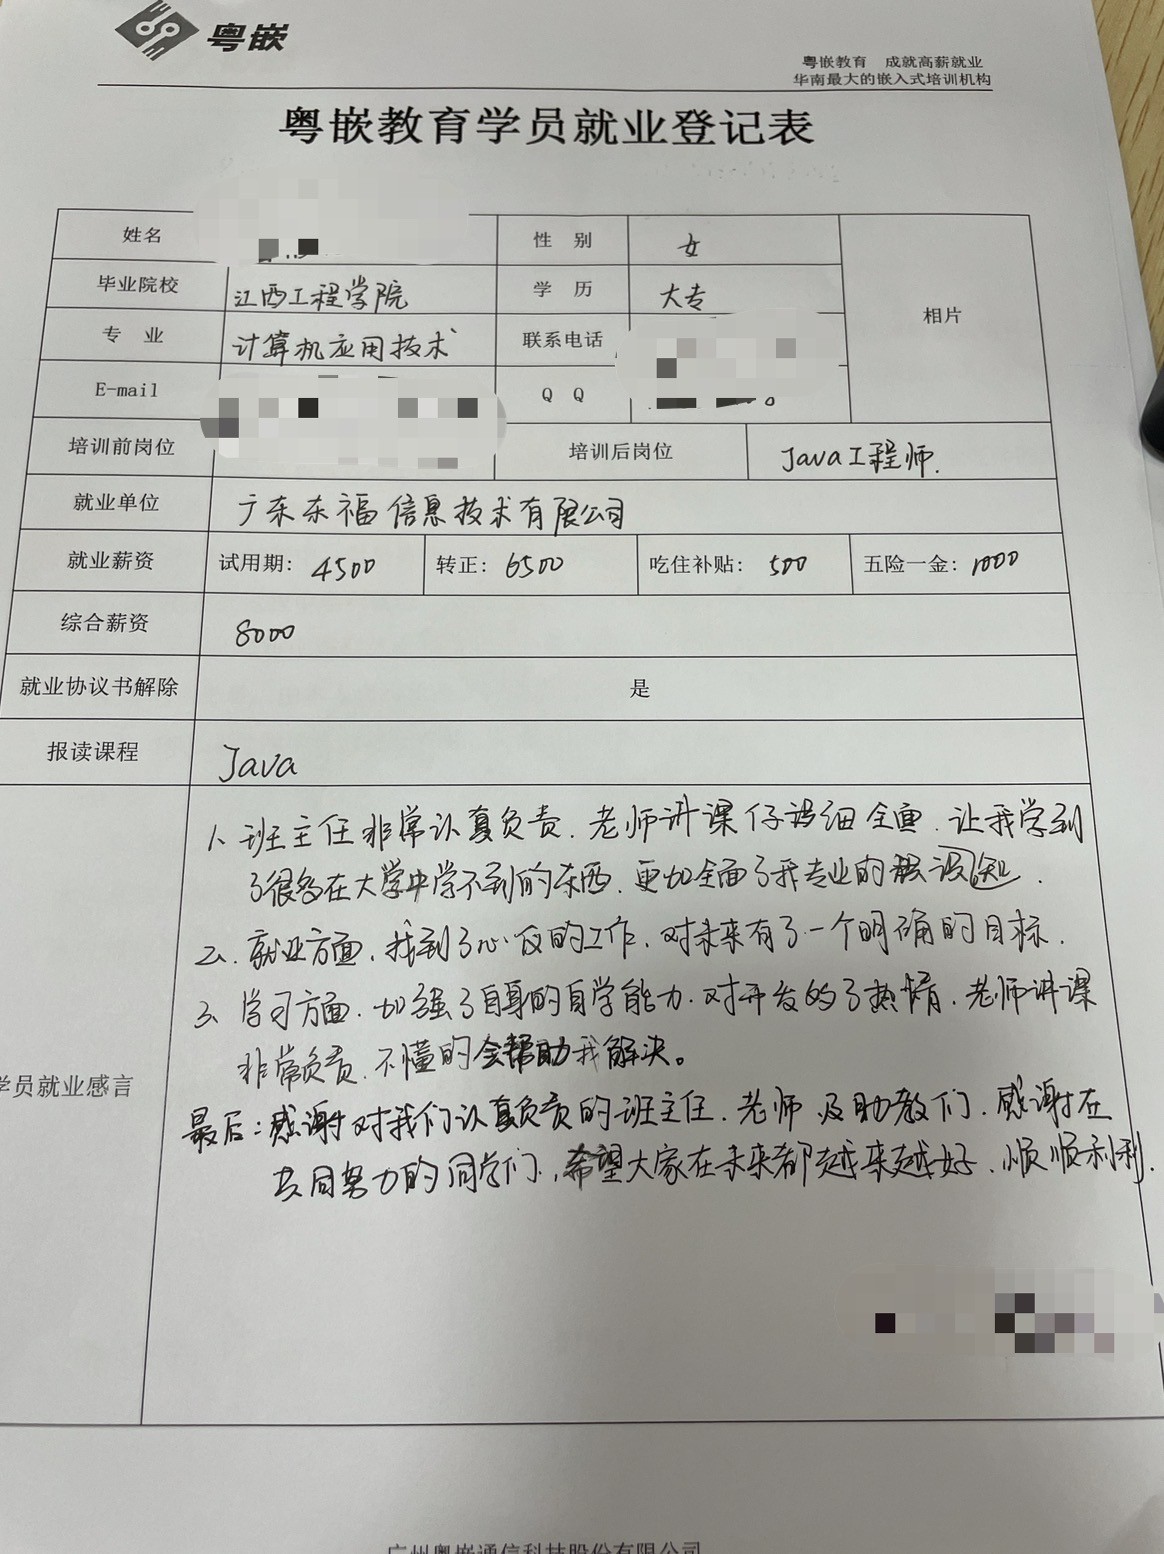 粤嵌
粤嵌教育 成就高薪就业
华南最大的嵌入式培训机构
粤嵌教育学员就业登记表
姓名 性 别 女
相片
毕业院校 江西工程学院 学 历 大专
专 业 计算机应用技术 联系电话
E-mail Q Q
培训前岗位 培训后岗位 Java工程师.
就业单位 广东东福信息技术有限公司
就业薪资 试用期: 4500 转正: 6500 吃住补贴: 500 五险一金: 1000
综合薪资 8000
就业协议书解除 是
报读课程 Java
学员就业感言
1、班主任非常认真负责.老师讲课仔详细全面.让我学到
了很多在大学中学不到的东西.更加全面了我专业的识知.
2、就业方面.找到了心仪的工作.对未来有了一个明确的目标.
3、学习方面.加强了自身的自学能力.对开发的了热情.老师讲课
非常负责.不懂的会帮助我解决。
最后:感谢对我们认真负责的班主任.老师及助教们.感谢在
共同努力的同学们.希望大家在未来都越来越好.顺顺利利.
广州粤嵌通信科技股份有限公司